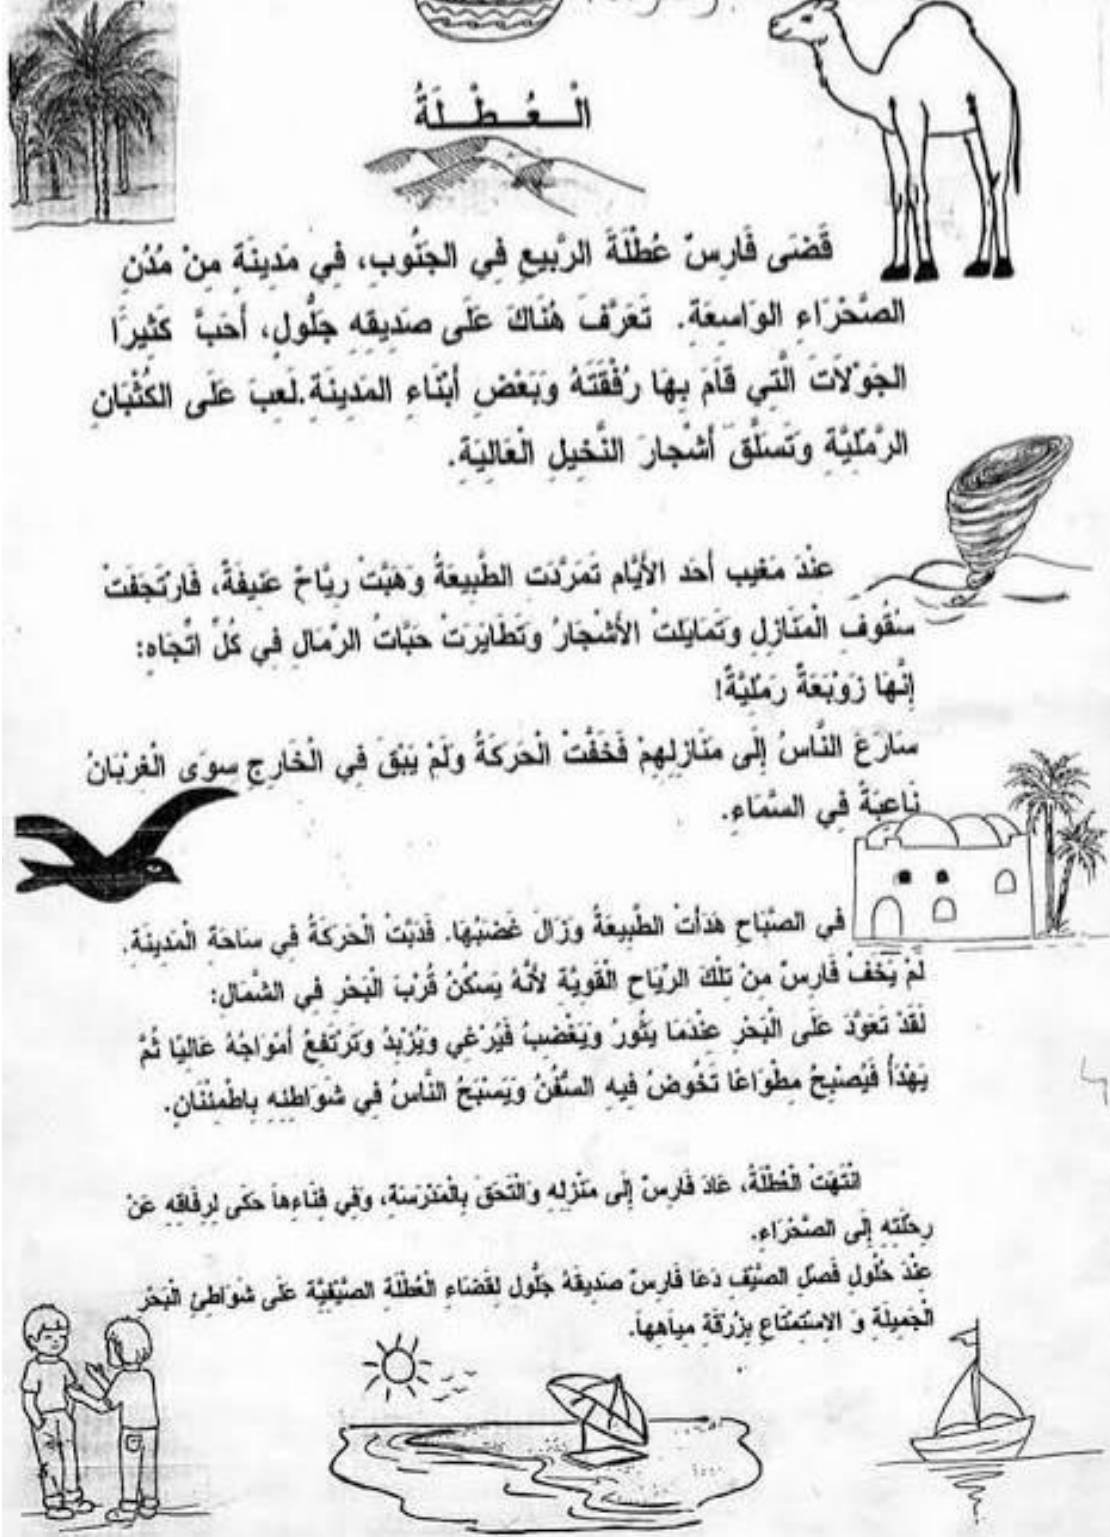 الْـعُـطْـلَةُ
قَضَى فَارِسٌ عُطْلَةَ الرَّبِيعِ فِي الجَنُوبِ، فِي مَدِينَةٍ مِنْ مُدُنِ
الصَّحْرَاءِ الوَاسِعَةِ. تَعَرَّفَ هُنَاكَ عَلَى صَدِيقِهِ جَلُّولٍ، أَحَبَّ كَثِيرًا
الجَوْلاَتَ الَّتِي قَامَ بِهَا رُفْقَتَهُ وَبَعْضِ أَبْنَاءِ المَدِينَةِ.لَعِبَ عَلَى الكُثْبَانِ
الرَّمْلِيَّةِ وَتَسَلَّقَ أَشْجَارَ النَّخِيلِ الْعَالِيَةِ.
عِنْدَ مَغِيبِ أَحَدِ الأَيَّامِ تَمَرَّدَتِ الطَّبِيعَةُ وَهَبَّتْ رِيَّاحٌ عَنِيفَةٌ، فَارْتَجَفَتْ
سُقُوفُ الْمَنَازِلِ وَتَمَايَلَتْ الأَشْجَارُ وَتَطَايَرَتْ حَبَّاتُ الرِّمَالِ فِي كُلِّ اتِّجَاهٍ:
إِنَّهَا زَوْبَعَةٌ رَمْلِيَّةٌ!
سَارَعَ النَّاسُ إِلَى مَنَازِلِهِمْ فَخَفَّتْ الْحَرَكَةُ وَلَمْ يَبْقَ فِي الْخَارِجِ سِوَى الْغِرْبَانُ
نَاعِبَةً فِي السَّمَاءِ.
في الصَّبَاحِ هَدَأَتْ الطَّبِيعَةُ وَزَالَ غَضَبُهَا. فَدَبَّتْ الْحَرَكَةُ فِي سَاحَةِ الْمَدِينَةِ.
لَمْ يَخَفْ فَارِسٌ مِنْ تِلْكَ الرِّيَاحِ الْقَوِيَّةِ لأَنَّهُ يَسْكُنُ قُرْبَ الْبَحْرِ فِي الشَّمَالِ:
لَقَدْ تَعَوَّدَ عَلَى الْبَحْرِ عِنْدَمَا يَثُورُ وَيَغْضَبُ فَيُرْغِي وَيُزْبِدُ وَتَرْتَفِعُ أَمْوَاجُهُ عَالِيًا ثُمَّ
يَهْدَأُ فَيُصْبِحُ مِطْوَاعًا تَخُوضُ فِيهِ السُّفُنُ وَيَسْبَحُ النَّاسُ فِي شَوَاطِئِهِ بِاطْمِئْنَانٍ.
انْتَهَتْ الْعُطْلَةُ، عَادَ فَارِسٌ إِلَى مَنْزِلِهِ وَالْتَحَقَ بِالْمَدْرَسَةِ، وَفِي فِنَاءِهاَ حَكَى لِرِفَاقِهِ عَنْ
رِحْلَتِهِ إِلَى الصَّحْرَاءِ.
عِنْدَ حُلُولِ فَصْلِ الصَّيْفِ دَعَا فَارِسٌ صَدِيقَهُ جَلُّول لِقَضَاءِ الْعُطْلَةِ الصَّيْفِيَّةِ عَلَى شَوَاطِئِ الْبَحْرِ
الْجَمِيلَةِ وَ الاِسْتِمْتَاعِ بِزُرْقَةِ مِيَاهِهاَ.